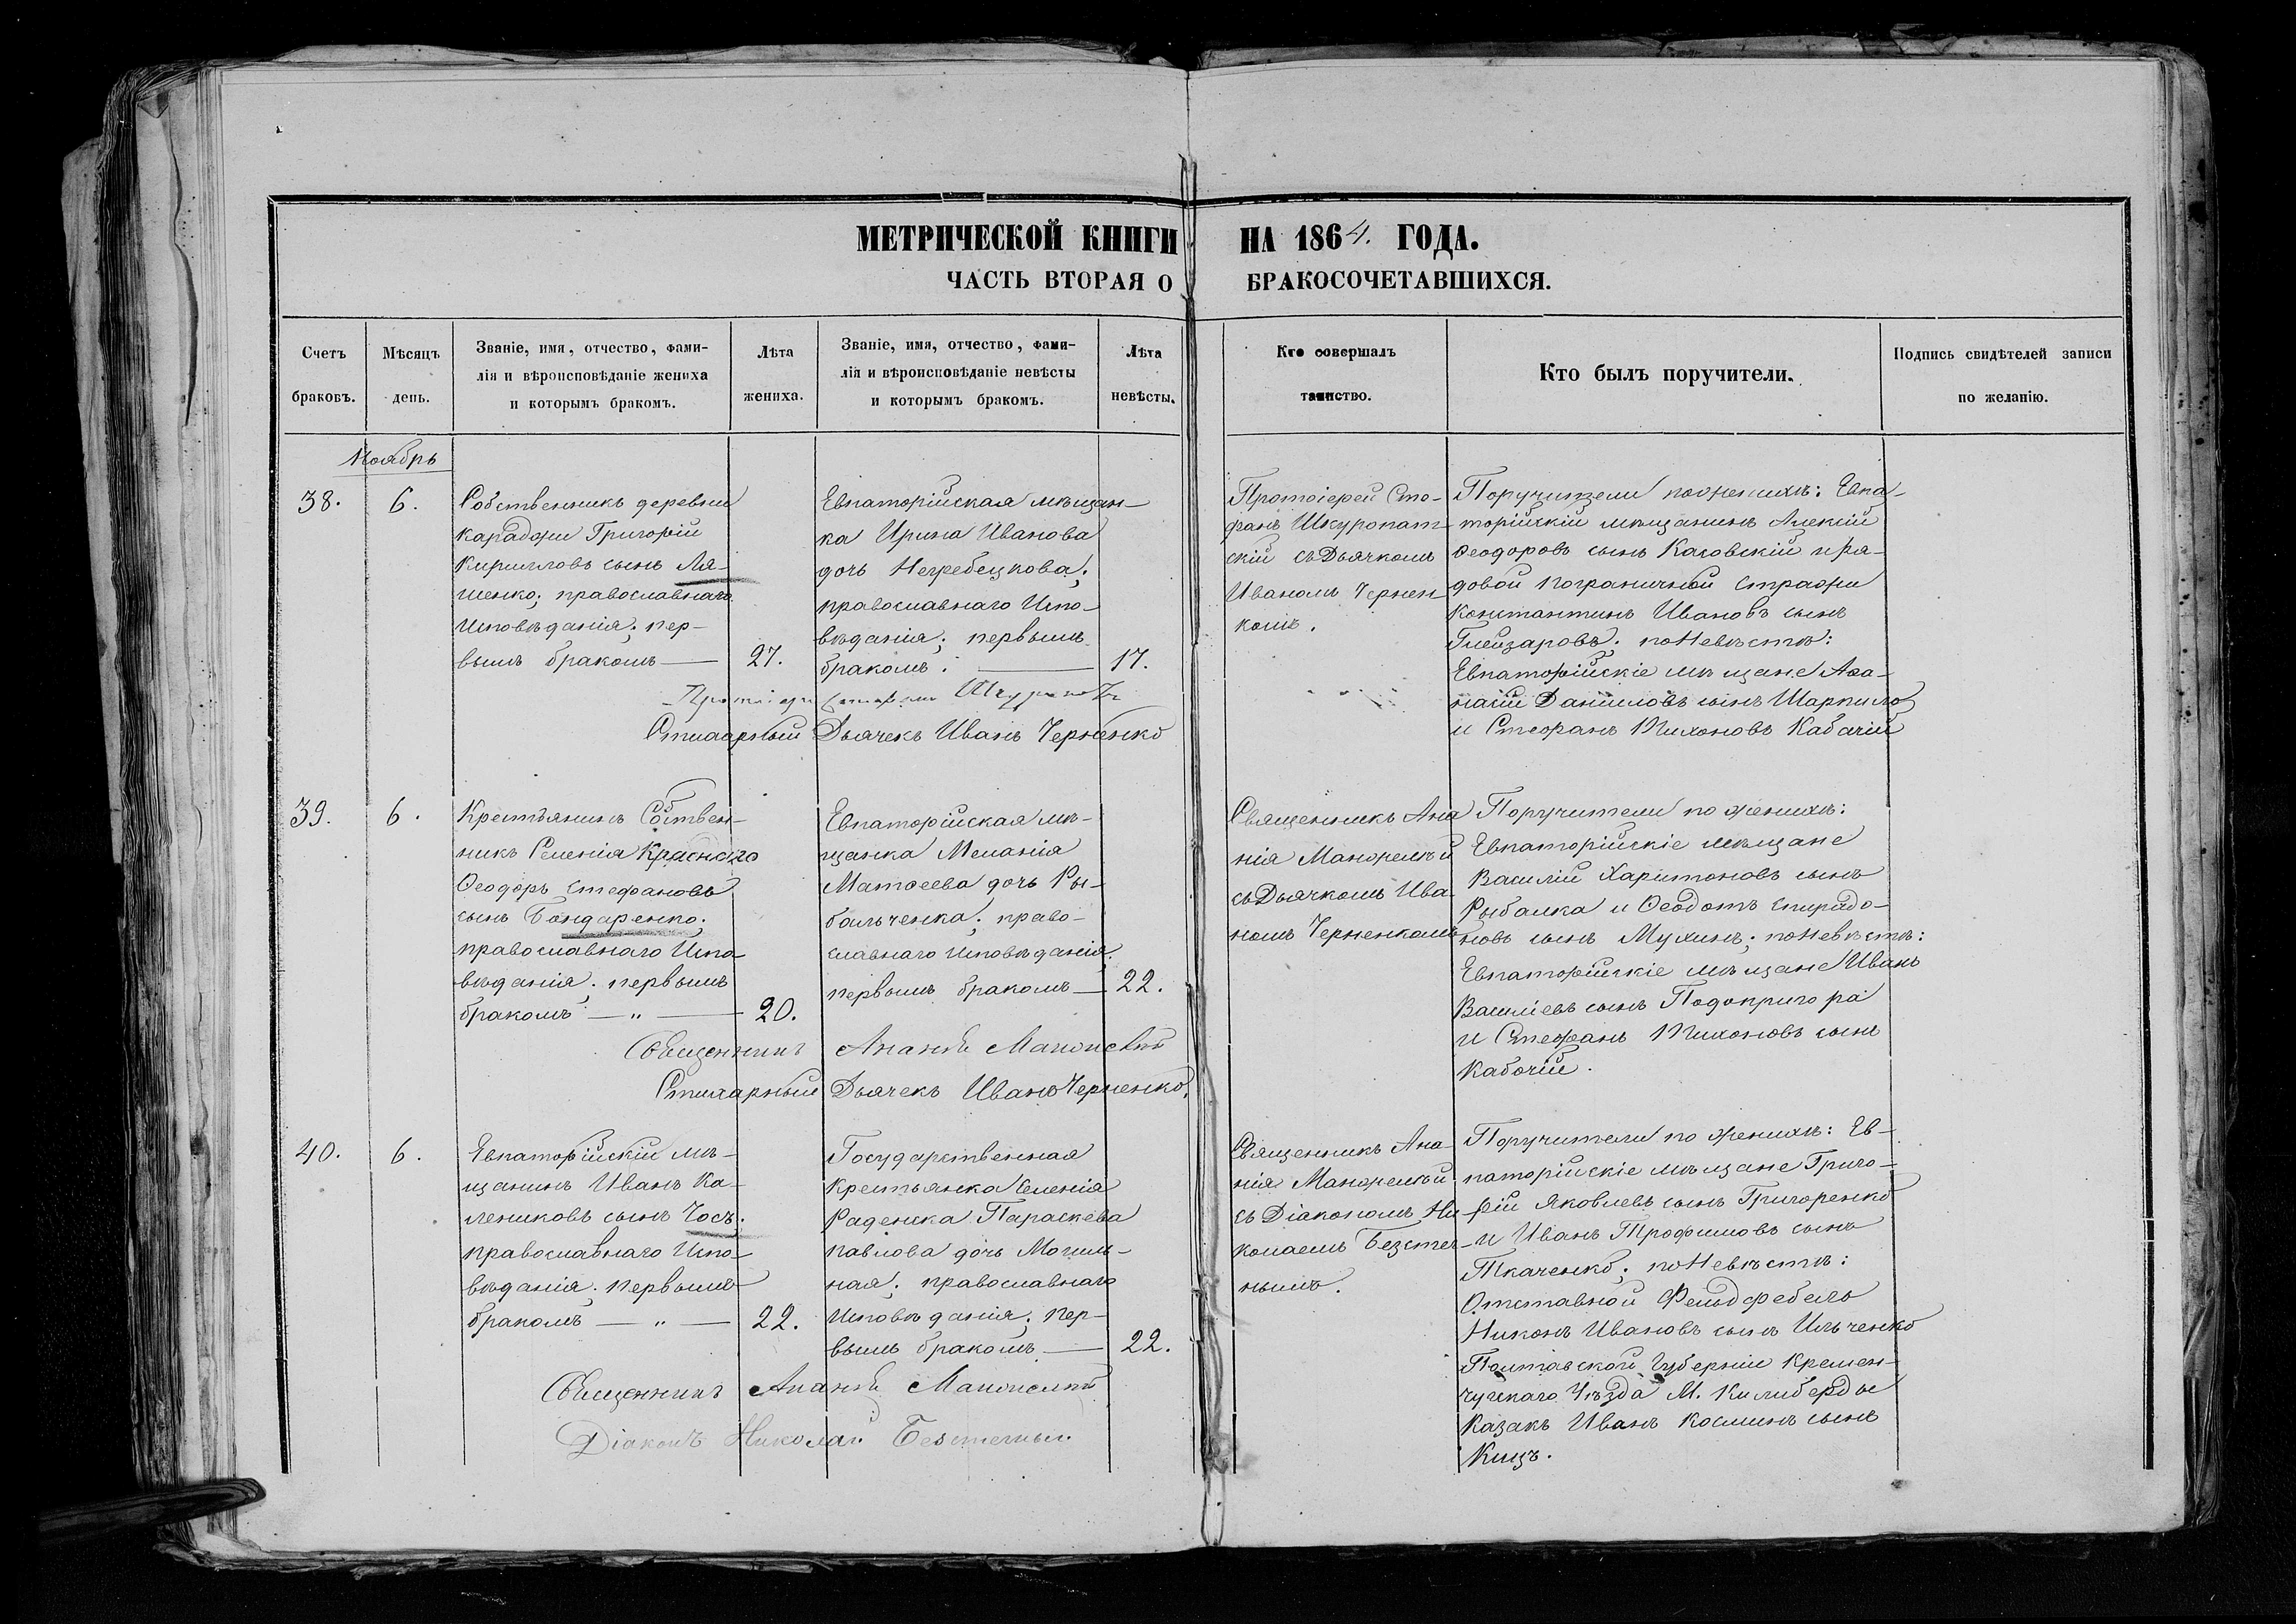 МЕТРИЧЕСКОЙ КНИГИ НА 1864. ГОДА.
ЧАСТЬ ВТОРАЯ О БРАКОСОЧЕТАВШИХСЯ.
Счетъ
браковъ.
Мѣсяцъ
день.
Званіе, имя, отчество, фами-
лія и вѣроисповѣданіе жениха
и которымъ бракомъ.
Лѣта
жениха.
Званіе, имя, отчество, фами-
лія и вѣроисповѣданіе невѣсты
и которымъ бракомъ.
Лѣта
невѣсты.
Кто совершалъ
таинство.
Кто былъ поручители.
Подпись свидѣтелей записи
по желанію.
Ноябрь
38.
6.
Собственникъ деревни
Караджи Григорій
Кирилловъ сынъ Ля-
шенко; православнаго
Исповѣданія; пер-
вымъ бракомъ —
27.
Евпаторійская мѣщан-
ка Ирина Иванова
дочь Негребецкова;
православнаго Испо-
вѣданія; первымъ
бракомъ. —
17.
Протоіерей Сте-
фанъ Шкуропат-
скій съ Дьячкомъ
Иваномъ Чернен-
комъ.
Поручители по женихѣ: Евпа-
торійскій мѣщанинъ Алексій
Ѳеодоровъ сынъ Каховскій и ря-
довой пограничной стражи
Константинъ Ивановъ сынъ
по невѣстѣ:
Евпаторійскіе мѣщане Аѳа-
насій Даниловъ сынъ Шарпило
и Стефанъ Тихоновъ Кабачій
Протоіерей Стефанъ
Стихарный Дьячекъ Иванъ Черненко
39.
6.
Крестьянинъ Собствен-
никъ Селенія Краснаго
Ѳеодоръ Стефановъ
сынъ Бондаренко;
православнаго Испо-
вѣданія; первымъ
бракомъ — „ —
20.
Евпаторійская мѣ-
щанка Меланія
Матѳеева дочь Ры-
бальченка; право-
славнаго Исповѣданія;
первымъ бракомъ —
22.
Священникъ Ана
нія Манжелѣй
съ Дьячкомъ Ива-
номъ Черненкомъ
Поручители по женихѣ:
Евпаторійскіе мѣщане
Василій Харитоновъ сынъ
Рыбалка и Ѳеодотъ Спиридо-
новъ сынъ Мухинъ; по невѣстѣ:
Евпаторійскіе мѣщане Иванъ
Василіевъ сынъ Подопригора
и Стефанъ Тихоновъ сынъ
Кабочій.
Священникъ
Стихарный Дьячекъ Иванъ Черненко.
40.
6.
Евпаторійскій мѣ-
щанинъ Иванъ Ка-
лениковъ сынъ Чосъ;
православнаго Испо-
вѣданія; первымъ
бракомъ — „ —
22.
Государственная
Крестьянка Селенія
Раденска Параскева
Павлова дочь Могиль-
ная; православнаго
Исповѣданія; пер-
вымъ бракомъ —
22.
Священникъ Ана-
нія Манжелѣй
съ Діакономъ Ни
колаемъ Безстен-
нымъ.
Поручители по женихѣ: Ев-
паторійскіе мѣщане Григо-
рій Яковлевъ сынъ Григоренко
и Иванъ Трофимовъ сынъ
Ткаченко; по невѣстѣ:
Отставной Фельдфебель
Никонъ Ивановъ сынъ Ильченко
Полтавской Губерніи Кремен-
чугскаго Уѣзда М. Килиберды
Казакъ Иванъ Косминъ сынъ
Кицъ.
Священникъ
Діаконъ Николай